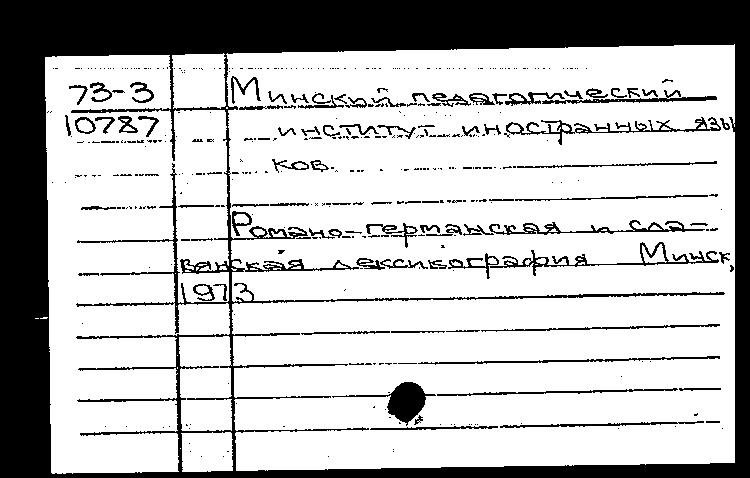 73-3 Минский педагогический
10787 институт иностранных язы
ков.
Романо-германская и сла-
вянская лексикография Минск,
1973